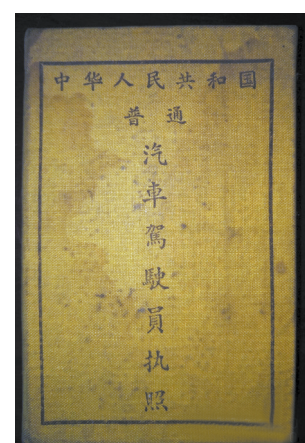 中华人民共和国
普通
汽車駕駛員执照